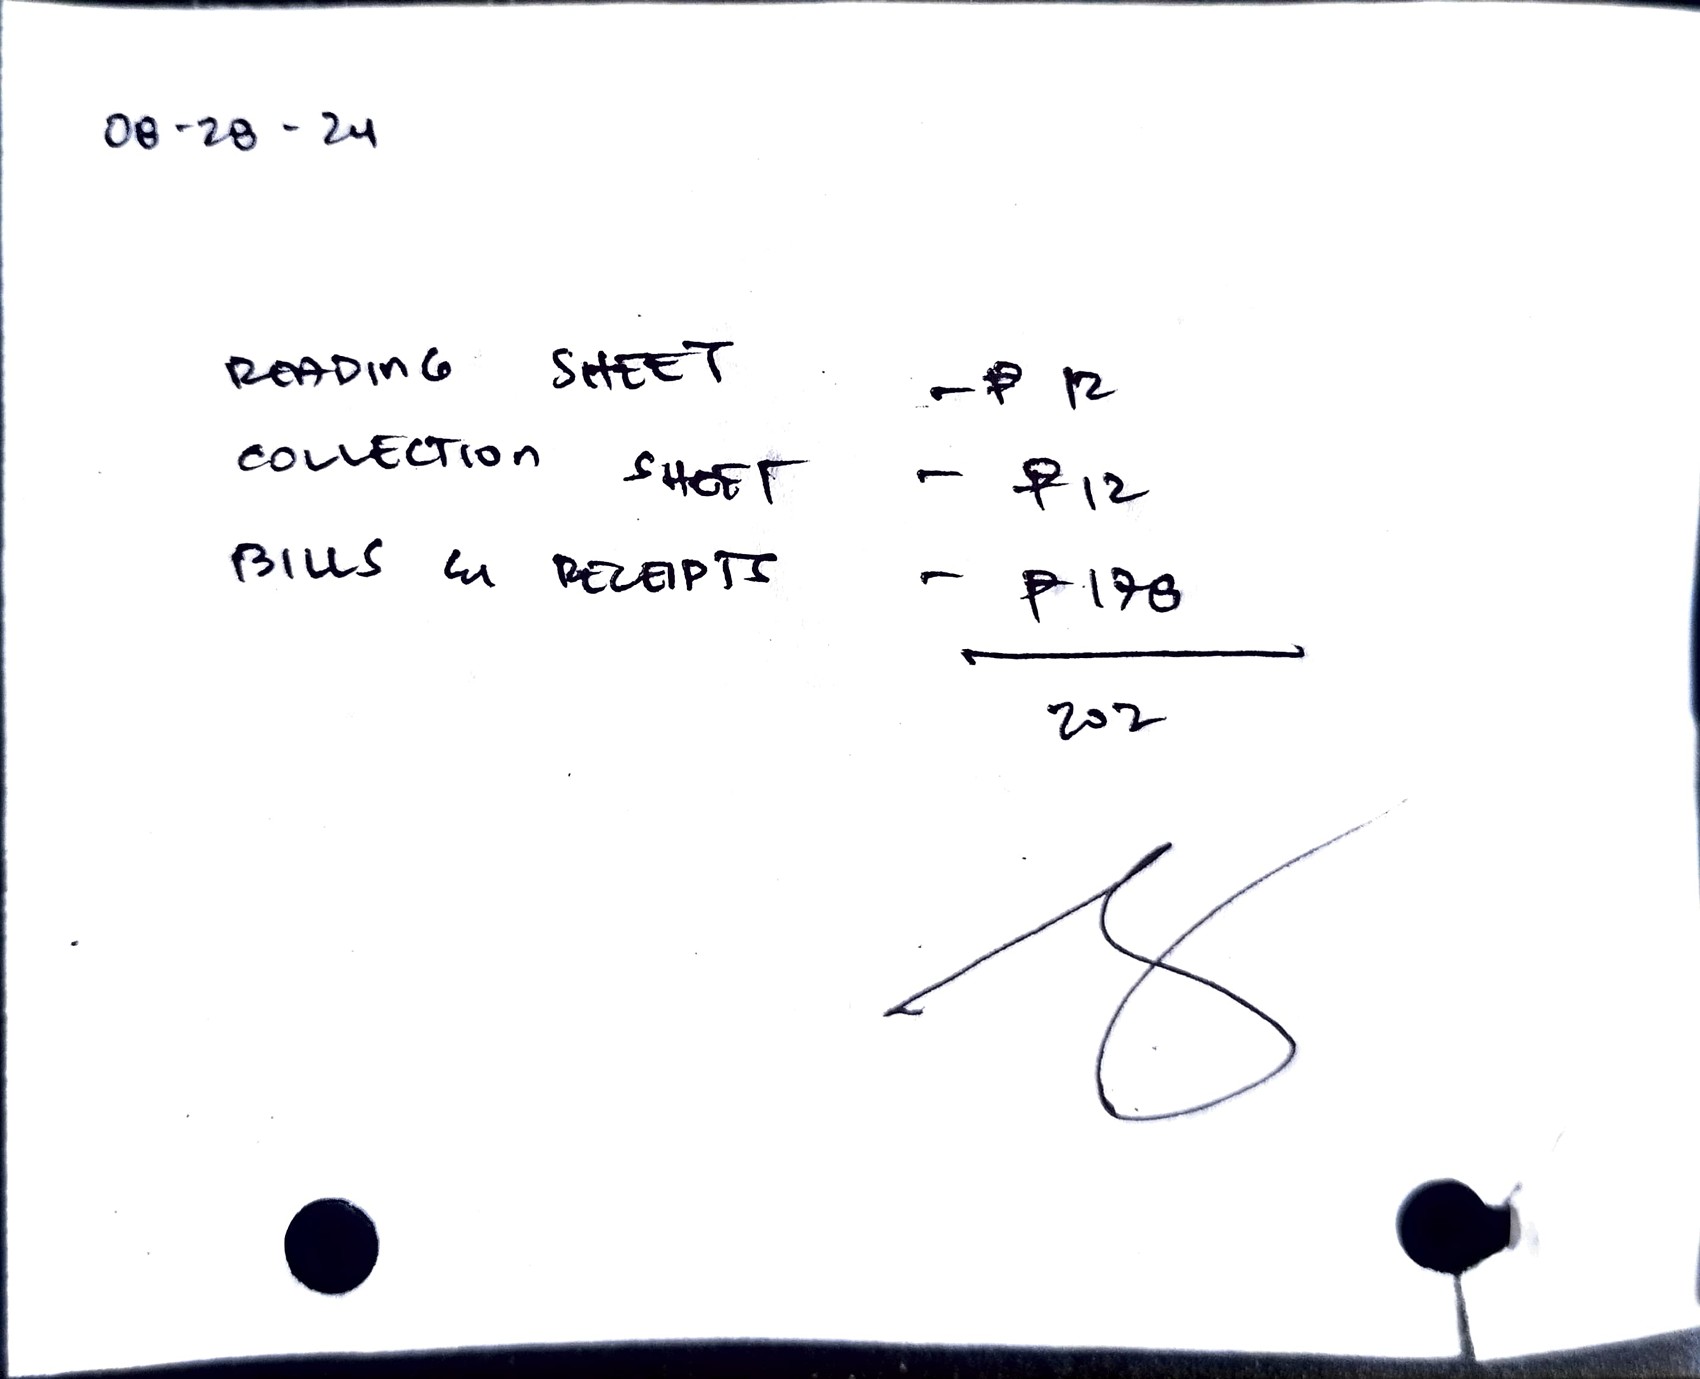 08-28-24
READING SHEET - ₱ 12
COLLECTION SHEET - ₱ 12
BILLS & RECEIPTS - ₱ 178
202